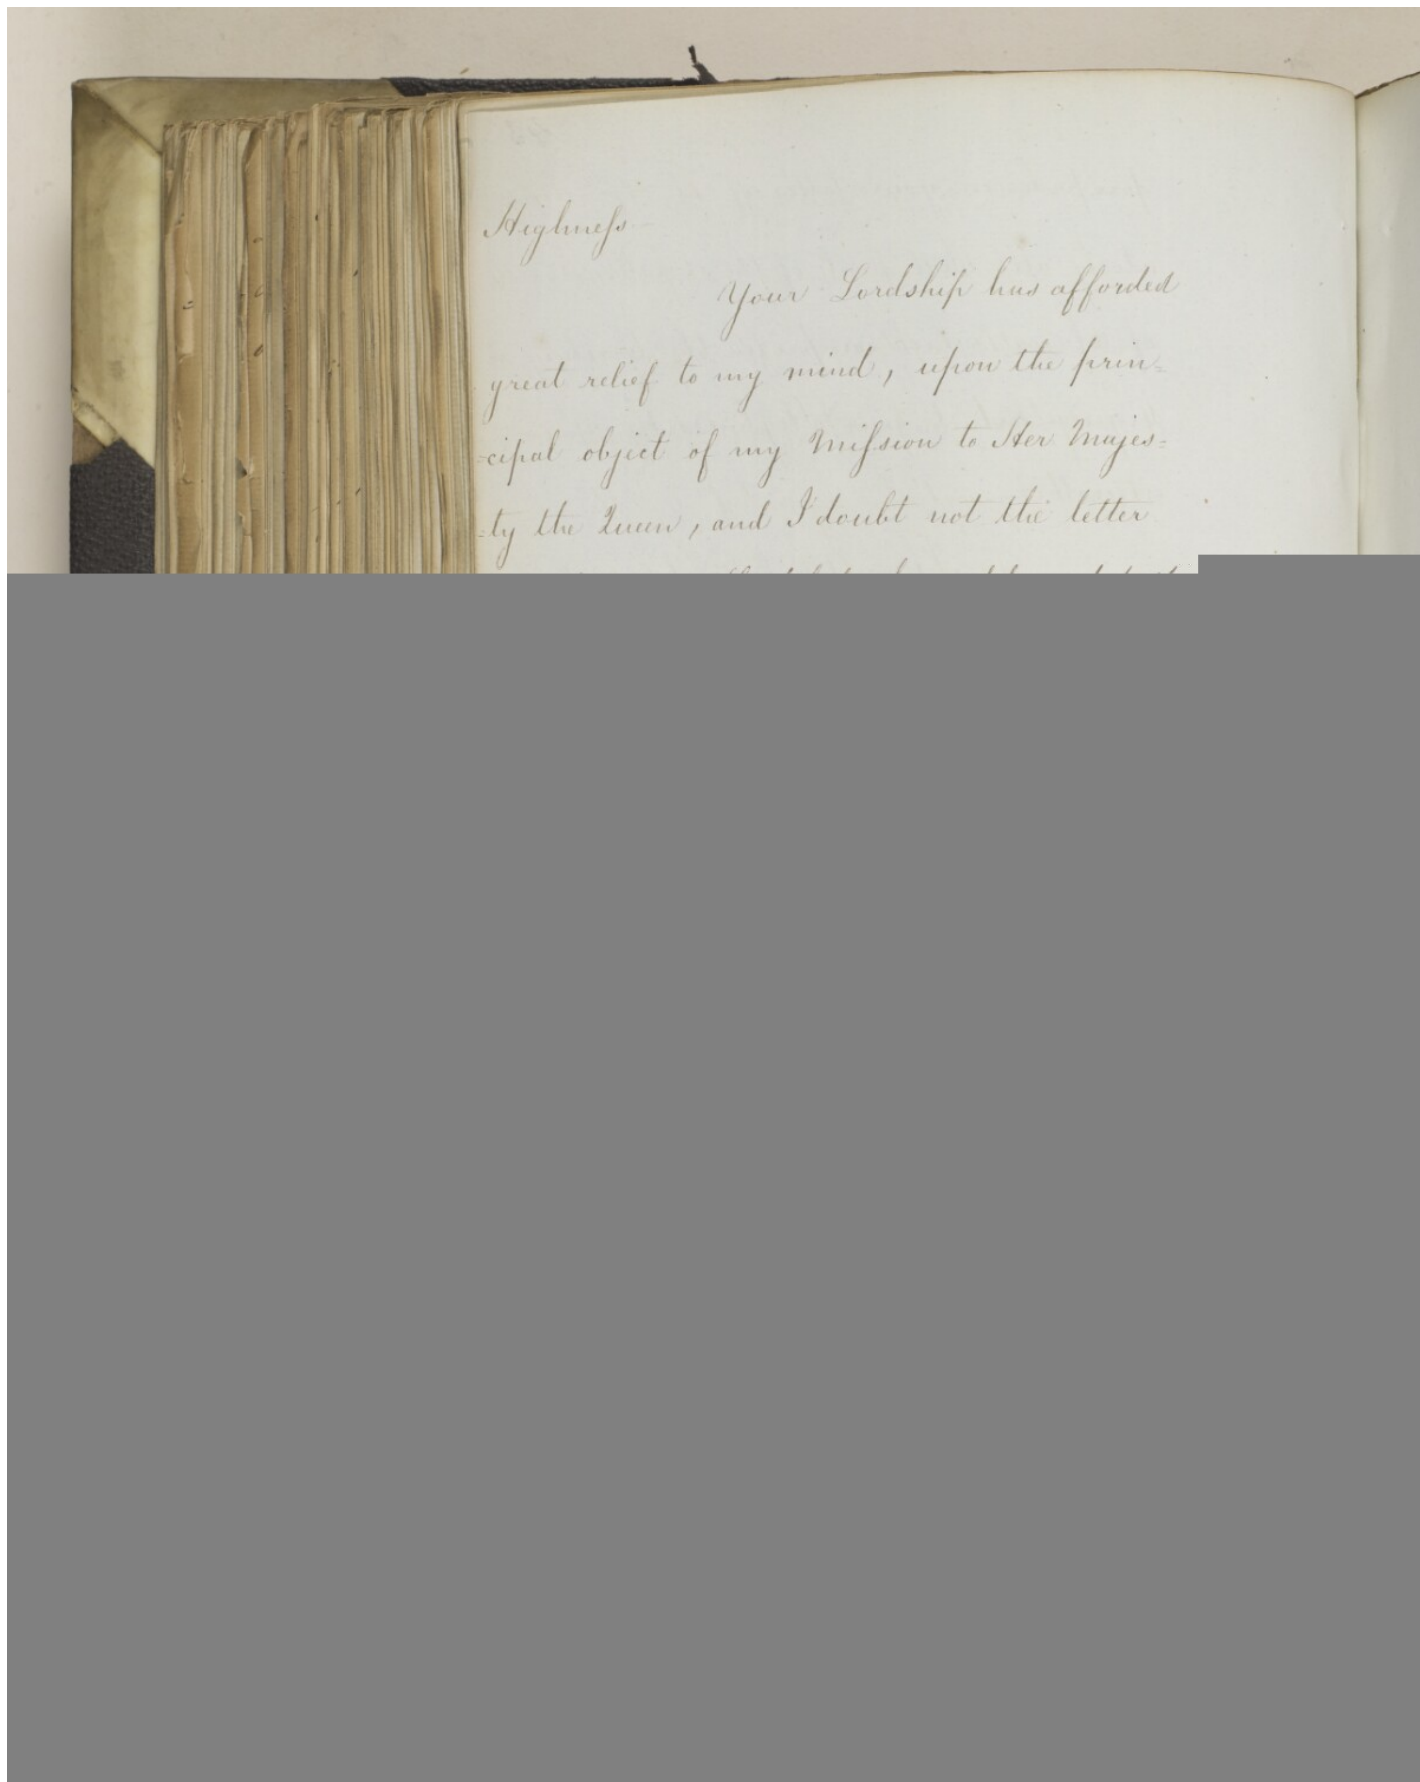 Highneſs
Your Lordship has afforded
great relief to my mind, upon the prin=
=cipal object of my Miſsion to Her Majes=
=ty the Queen, and I doubt not the letter